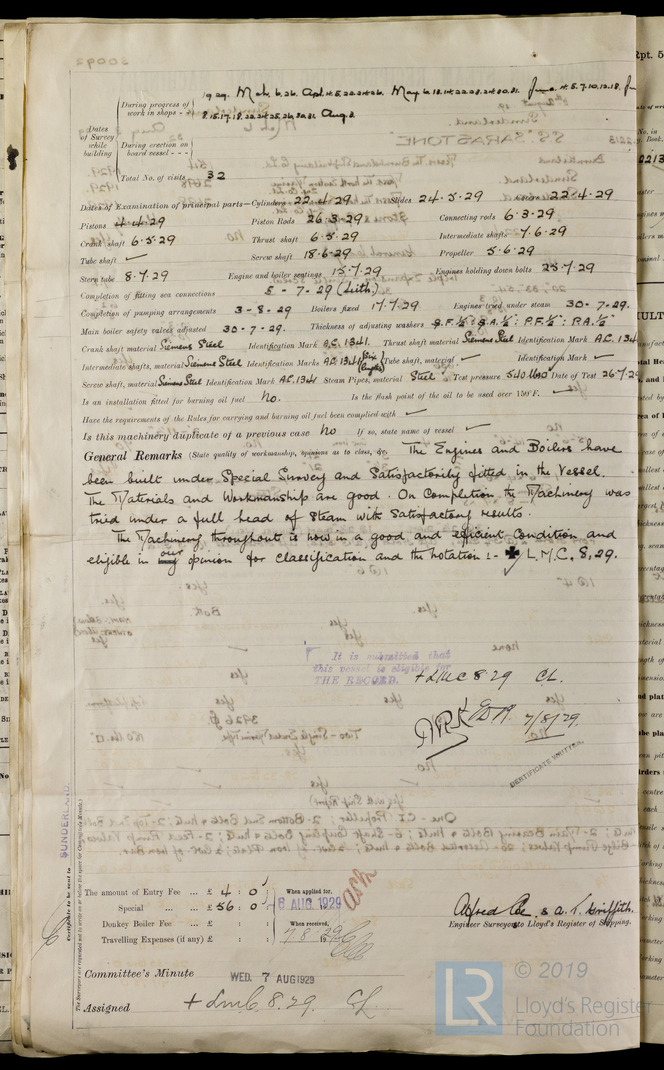 1929. Mch. 6.26. Apl. 4.5.22.24.26. May. 6.13.14.22.23.24.30.31. June. 4.5.7.10.12.18.
During progress of work in shops - -
8.15.17.18.22.24.25.26.30.31. Aug.3.
Dates of Survey while building
During erection on board vessel - - -
Total No. of visits 32
Dates of Examination of principal parts—Cylinders 22.4.29 Slides 24.5.29 22.4.29
Pistons 4.4.29 Piston Rods 26.3.29 Connecting rods 6.3.29
Crank shaft 6.5.29 Thrust shaft 6.5.29 Intermediate shafts 7.6.29
Tube shaft ✓ Screw shaft 18.6.29 Propeller 5.6.29
Stern tube 8.7.29 Engine and boiler seatings 15.7.29 Engines holding down bolts 25.7.29
Completion of fitting sea connections 5-7-29 (Leith)
Completion of pumping arrangements 3-8-29 Boilers fixed 17.7.29 Engines tried under steam 30-7-29.
Main boiler safety valves adjusted 30-7-29. Thickness of adjusting washers S.F.½: S.A.½: P.F.½: P.A.½
Crank shaft material Siemens Steel Identification Mark A.C. 1341. Thrust shaft material Siemens Steel Identification Mark A.C. 134
Intermediate shafts, material Siemens Steel Identification Marks A.C. 1341 Tube shaft, material ✓ Identification Mark ✓
Screw shaft, material Siemens Steel Identification Mark A.C. 1341 Steam Pipes, material Steel Test pressure 540 lbs Date of Test 26.7.29
Is an installation fitted for burning oil fuel No. Is the flash point of the oil to be used over 150°F. ✓
Have the requirements of the Rules for carrying and burning oil fuel been complied with ✓
Is this machinery duplicate of a previous case No If so, state name of vessel ✓
General Remarks (State quality of workmanship, opinions as to class, &c. The Engines and Boilers have
been built under Special Survey and Satisfactorily fitted in the Vessel.
The Materials and Workmanship are good. On Completion the Machinery was
tried under a full head of Steam with Satisfactory results.
The Machinery throughout is now in a good and efficient Condition and
eligible in our opinion for classification and the notation :- ✠ L.M.C. 8,29.
It is submitted that
this vessel is eligible for
THE RECORD.
+ LMC 8 29 CL.
7/8/29.
CERTIFICATE WRITTEN.
SUNDERLAND.
Certificate to be sent to
The amount of Entry Fee ... £ 4 : 0 : When applied for,
Special ... £ 56 : 0 : 6 AUG 1929
Donkey Boiler Fee ... £ : : When received,
Travelling Expenses (if any) £ : : 7.8.29
Alfred Coe & A. T. Griffith.
Engineer Surveyors to Lloyd's Register of Shipping.
Committee's Minute WED. 7 AUG 1929
Assigned + LMC 8.29. CL
LR
© 2019
Lloyd's Register
Foundation